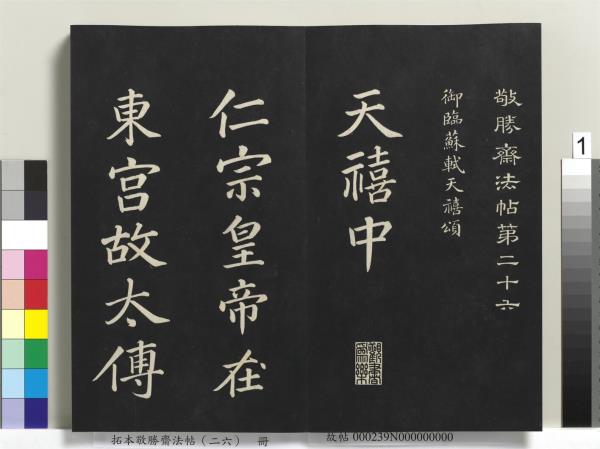 敬勝齋法帖第二十六
御臨蘇軾天禧頌
天禧中
觀書為樂
仁宗皇帝在
東宮故太傅
1
拓本敬勝齋法帖(二六) 冊
故帖 000239N000000000